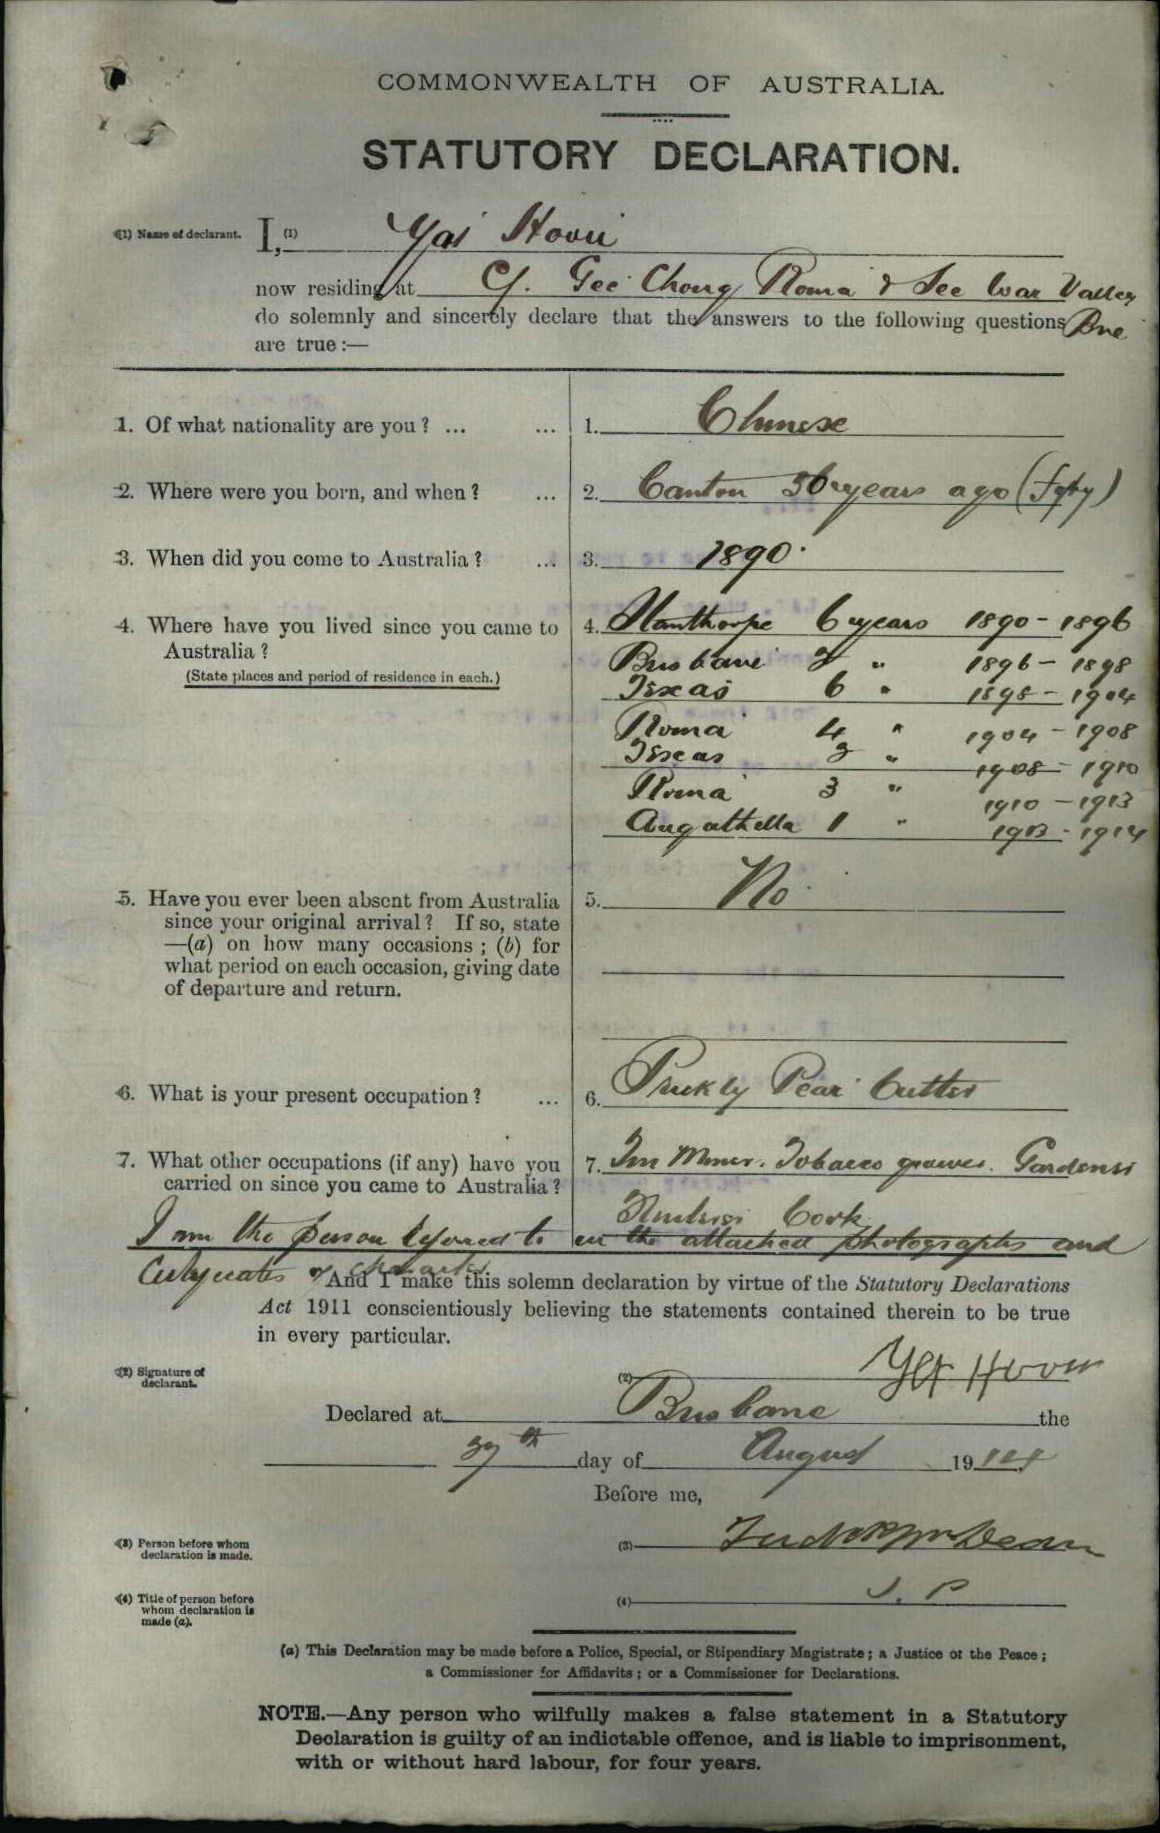 COMMONWEALTH OF AUSTRALIA.
STATUTORY DECLARATION.
(1) Name of declarant. I, (1) Yai Hovii
now residing at C/. Gee Chong Roma & See War Valley
do solemnly and sincerely declare that the answers to the following questions Bne
are true:—
1. Of what nationality are you? ... ... 1. Chinese
2. Where were you born, and when? ... 2. Canton 56 years ago (
3. When did you come to Australia? ... 3. 1890.
4. Where have you lived since you came to 4. Stanthorpe 6 years 1890 - 1896
Australia? Brisbane 2 " 1896 - 1898
(State places and period of residence in each.) Texas 6 " 1898 - 1904
Roma 4 " 1904 - 1908
Texas 2 " 1908 - 1910
Roma 3 " 1910 - 1913
Augathella 1 " 1913 - 1914
5. Have you ever been absent from Australia 5. No
since your original arrival? If so, state
—(a) on how many occasions; (b) for
what period on each occasion, giving date
of departure and return.
6. What is your present occupation? ... 6. Prickly Pear Cutter
7. What other occupations (if any) have you 7. Tin Miner. Tobacco grower. Gardener
carried on since you came to Australia? Cook
I am the person referred to in the attached photographs and
Certificates of character
And I make this solemn declaration by virtue of the Statutory Declarations
Act 1911 conscientiously believing the statements contained therein to be true
in every particular.
(2) Signature of declarant. (2) Hoow
Declared at Brisbane the
27th day of August 1914
Before me,
(3) Person before whom declaration is made. (3)
(4) Title of person before whom declaration is made (a). (4) J. P
(a) This Declaration may be made before a Police, Special, or Stipendiary Magistrate; a Justice of the Peace;
a Commissioner for Affidavits; or a Commissioner for Declarations.
NOTE.—Any person who wilfully makes a false statement in a Statutory
Declaration is guilty of an indictable offence, and is liable to imprisonment,
with or without hard labour, for four years.